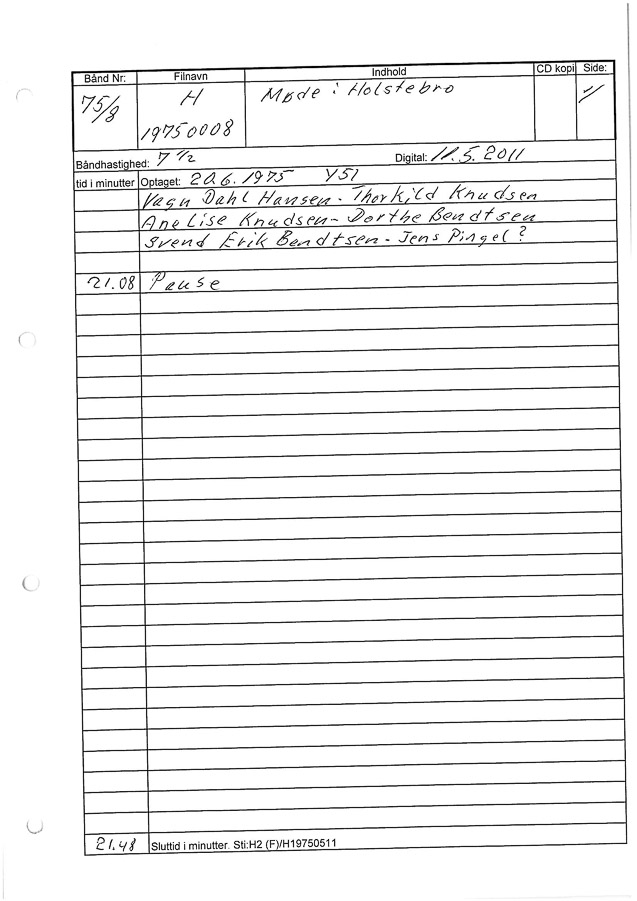 Bånd Nr: Filnavn Indhold CD kopi Side:
75/8 H Møde i Holstebro
19750008
Båndhastighed: 7 1/2 Digital: 11.5.2011
tid i minutter Optaget: 20.6.1975 Y51
Vagn Dahl Hansen - Thorkild Knudsen
Ane Lise Knudsen - Dorthe Bendtsen
Svend Erik Bendtsen - Jens Pingel?
21.08 Pause
21.48 Sluttid i minutter. Sti:H2 (F)/H19750511